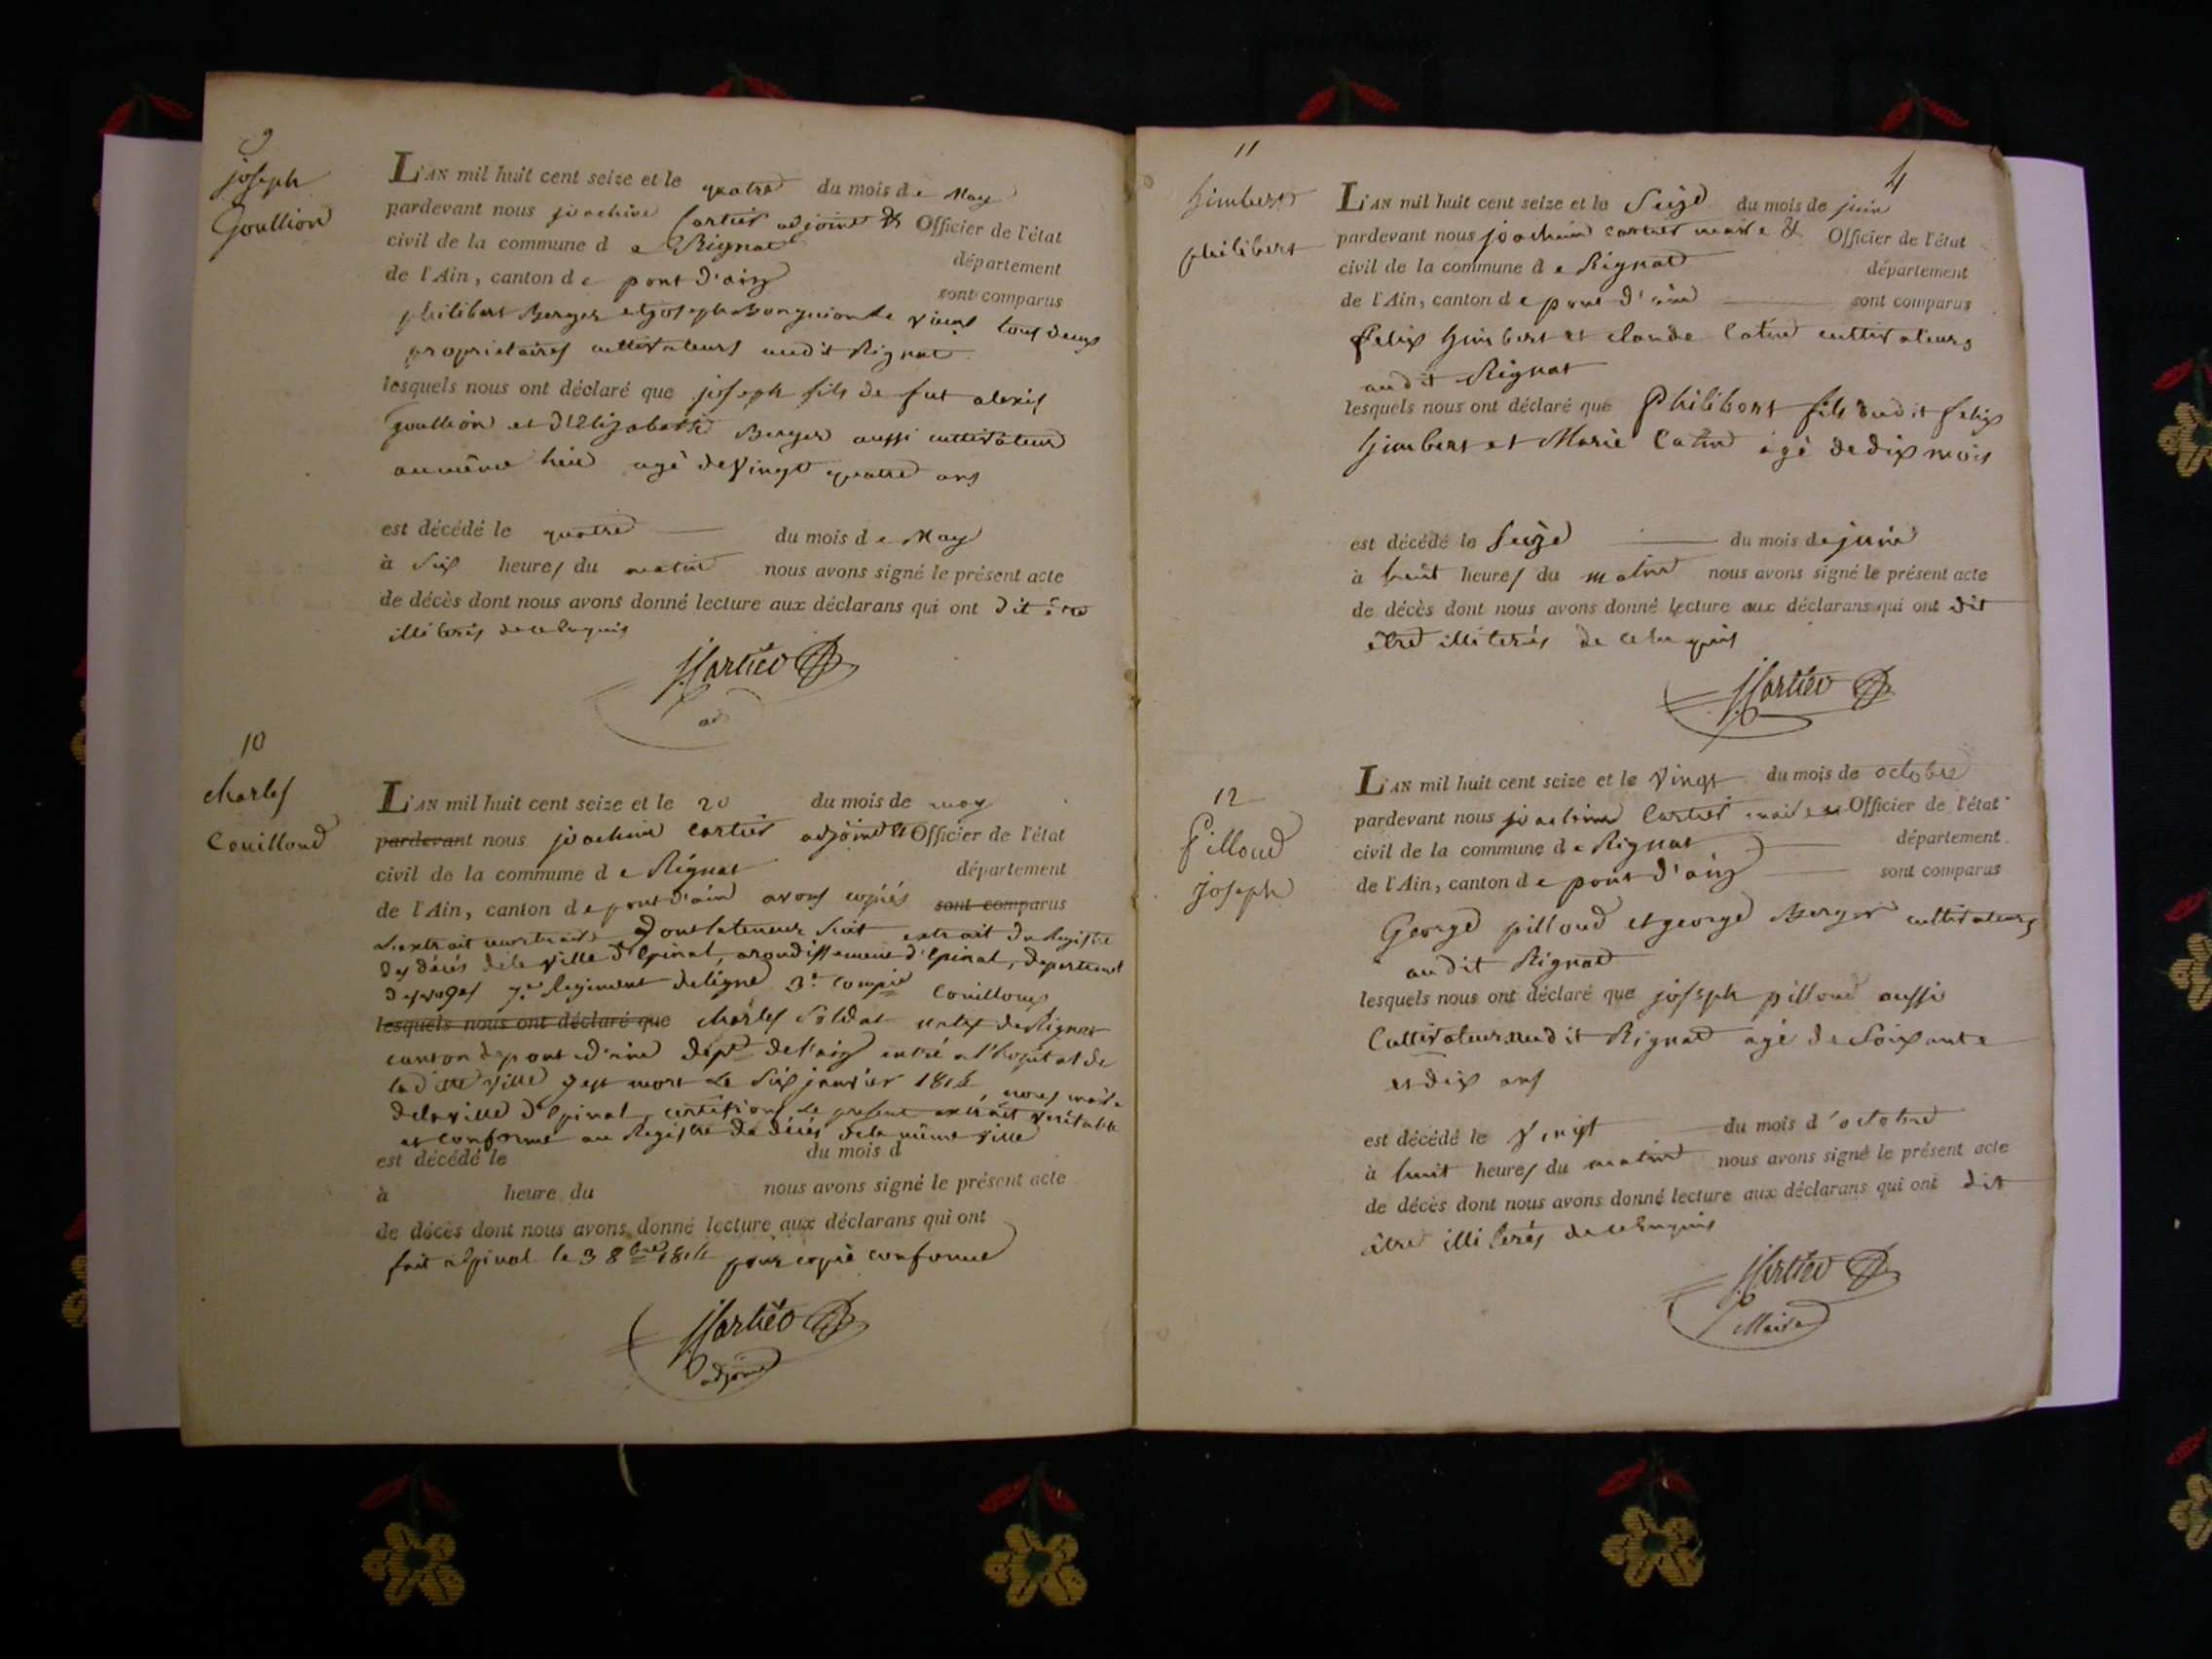 9
joseph
Goullion
L'AN mil huit cent seize et le quatre du mois de May
pardevant nous joachim Cartier adjoint & Officier de l'état
civil de la commune de Rignat département
de l'Ain, canton de pont d'ain sont comparus
philibert Berger et joseph vieux tous deux
proprietaires cultivateurs audit Rignat
lesquels nous ont déclaré que joseph fils de fut alexis
Goullion et d'Elizabeth Berger aussi cultivateur
au même lieu agé de vingt quatre ans
est décédé le quatre du mois de May
à Six heures du matin nous avons signé le présent acte
de décès dont nous avons donné lecture aux déclarans qui ont dit être
illiterés de ce enquis
JCartier
ad
10
charles
Couilloud
L'AN mil huit cent seize et le 20 du mois de may
pardevant nous joachim Cartier adjoint & Officier de l'état
civil de la commune de Rignat département
de l'Ain, canton de pont d'ain avons copiés sont comparus
L'extrait mortuaire dont la teneur suit extrait du Registre
des décés de la ville d'Epinal, arondissement d'Epinal, departement
des vosges 7e Regiment de ligne 3e compie Couilloud
lesquels nous ont déclaré que charles Soldat natif de Rignat
canton de pont d'ain dept de l'ain entré a l'hopital de
la ditte ville y est mort le Six janvier 1814, nous maire
de la ville d'Epinal, certifions le present extrait veritable
et conforme au Registre de décés de la même ville
est décédé le du mois d
à heure du nous avons signé le présent acte
de décès dont nous avons donné lecture aux déclarans qui ont
fait a Epinal le 3 8bre 1814 pour copie conforme
JCartier
adjoint
4
11
Gimbert
philibert
L'AN mil huit cent seize et le Seize du mois de juin
pardevant nous joachim cartier maire & Officier de l'état
civil de la commune de Rignat département
de l'Ain, canton de pont d'ain sont comparus
felix Gimbert et claude Catin cultivateurs
audit Rignat
lesquels nous ont déclaré que Philibert fils dudit felix
Gimbert et Marie Catin agé de dix mois
est décédé le Seize du mois de juin
à huit heures du matin nous avons signé le présent acte
de décès dont nous avons donné lecture aux déclarans qui ont dit
être illiterés de ce enquis
JCartier
12
Pilloud
joseph
L'AN mil huit cent seize et le vingt du mois de octobre
pardevant nous joachim Cartier maire & Officier de l'état
civil de la commune de Rignat département
de l'Ain, canton de pont d'ain sont comparus
George pilloud et george Berger cultivateurs
audit Rignat
lesquels nous ont déclaré que joseph pilloud aussi
Cultivateur audit Rignat agé de Soixante
et dix ans
est décédé le vingt du mois d'octobre
à huit heures du matin nous avons signé le présent acte
de décès dont nous avons donné lecture aux déclarans qui ont dit
être illiterés de ce enquis
JCartier
Maire